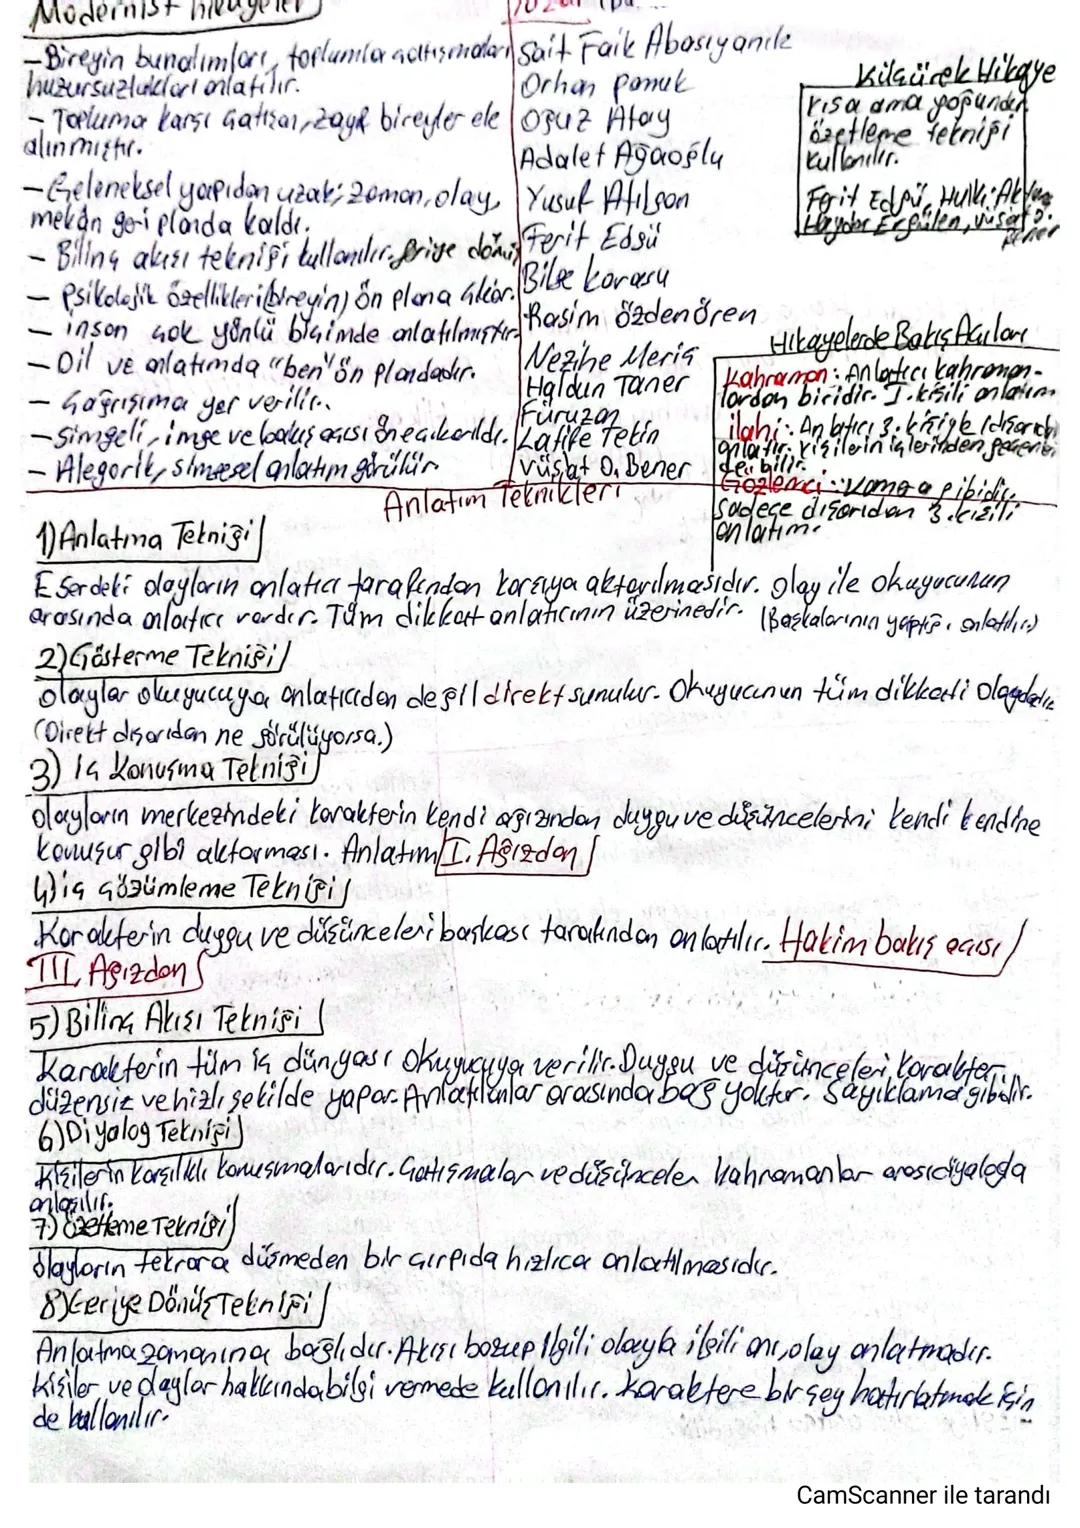 Modernist hikayeler
- Bireyin bunalımları, toplumla çatışmaları
huzursuzlukları anlatılır.
- Topluma karşı çatışan, zayıf bireyler ele
alınmıştır.
- Geleneksel yapıdan uzak; zaman, olay,
mekân geri planda kaldı.
- Bilinç akışı tekniği kullanılır. geriye dönüş
- Psikolojik özellikleri (bireyin) ön plana çıkar.
- insan çok yönlü biçimde anlatılmıştır.
- Dil ve anlatımda "ben" ön plandadır.
- Çağrışıma yer verilir.
- Simgeli, imge ve bakış açısı öne çıkarıldı.
- Alegorik, simgesel anlatım görülür
Sait Faik Abasıyanık
Orhan Pamuk
Oğuz Atay
Adalet Ağaoğlu
Yusuf Atılgan
Ferit Edgü
Bilge Karasu
Rasim Özdenören
Nezihe Meriç
Haldun Taner
Füruzan
Latife Tekin
Vüs'at O. Bener
Kılçürek Hikaye
Kısa ama yoğundur
özetleme tekniği
kullanılır.
Ferit Edgü, Hulki Aktunç
Haydar Ergülen, Vüsat O.
Bener
Hikayelerde Bakış Açıları
Kahraman: Anlatıcı kahraman-
lardan biridir. I. kişili anlatım
ilahi: Anlatıcı 3. kişiyle (dışarıdan)
anlatır. Kişilerin içlerinden geçenleri
de bilir.
Gözlemci: Kamera gibidir.
Sadece dışarıdan 3. kişili
anlatım.
Anlatım Teknikleri
1) Anlatma Tekniği
Eserdeki olayların anlatıcı tarafından karşıya aktarılmasıdır. Olay ile okuyucunun
arasında anlatıcı vardır. Tüm dikkat anlatıcının üzerinedir. (Başkalarının yaptığı anlatılır)
2) Gösterme Tekniği
Olaylar okuyucuya anlatıcıden değil direkt sunulur. Okuyucunun tüm dikkati olaydadır.
(Direkt dışarıdan ne görülüyorsa.)
3) İç Konuşma Tekniği
Olayların merkezindeki karakterin kendi ağzından duygu ve düşüncelerini kendi kendine
konuşur gibi aktarması. Anlatım I. Ağızdan
4) iç çözümleme Tekniği
Karakterin duygu ve düşünceleri başkası tarafından anlatılır. Hakim bakış açısı
III. Ağızdan
5) Bilinç Akışı Tekniği
Karakterin tüm iç dünyası okuyucuya verilir. Duygu ve düşünceleri karakter
düzensiz ve hızlı şekilde yapar. Anlatılanlar arasında bağ yoktur. Sayıklama gibidir.
6) Diyalog Tekniği
Kişilerin karşılıklı konuşmalarıdır. Çatışmalar ve düşünceler kahramanlar arası diyalogla
anlaşılır.
7) Özetleme Tekniği
Olayların tekrara düşmeden bir çırpıda hızlıca anlatılmasıdır.
8) Geriye Dönüş Tekniği
Anlatma zamanına bağlıdır. Akışı bozup ilgili olayla ilgili anı, olay anlatmadır.
Kişiler ve olaylar hakkında bilgi vermede kullanılır. Karaktere bir şey hatırlatmak için
de kullanılır.
CamScanner ile tarandı